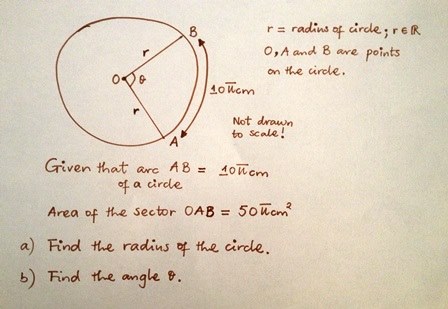 B
r
r = radius of circle ; r ∈ ℝ
O, A and B are points
on the circle.
O
θ
10π cm
r
Not drawn
to scale!
A
Given that arc AB = 10π cm
of a circle
Area of the sector OAB = 50π cm²
a) Find the radius of the circle.
b) Find the angle θ.